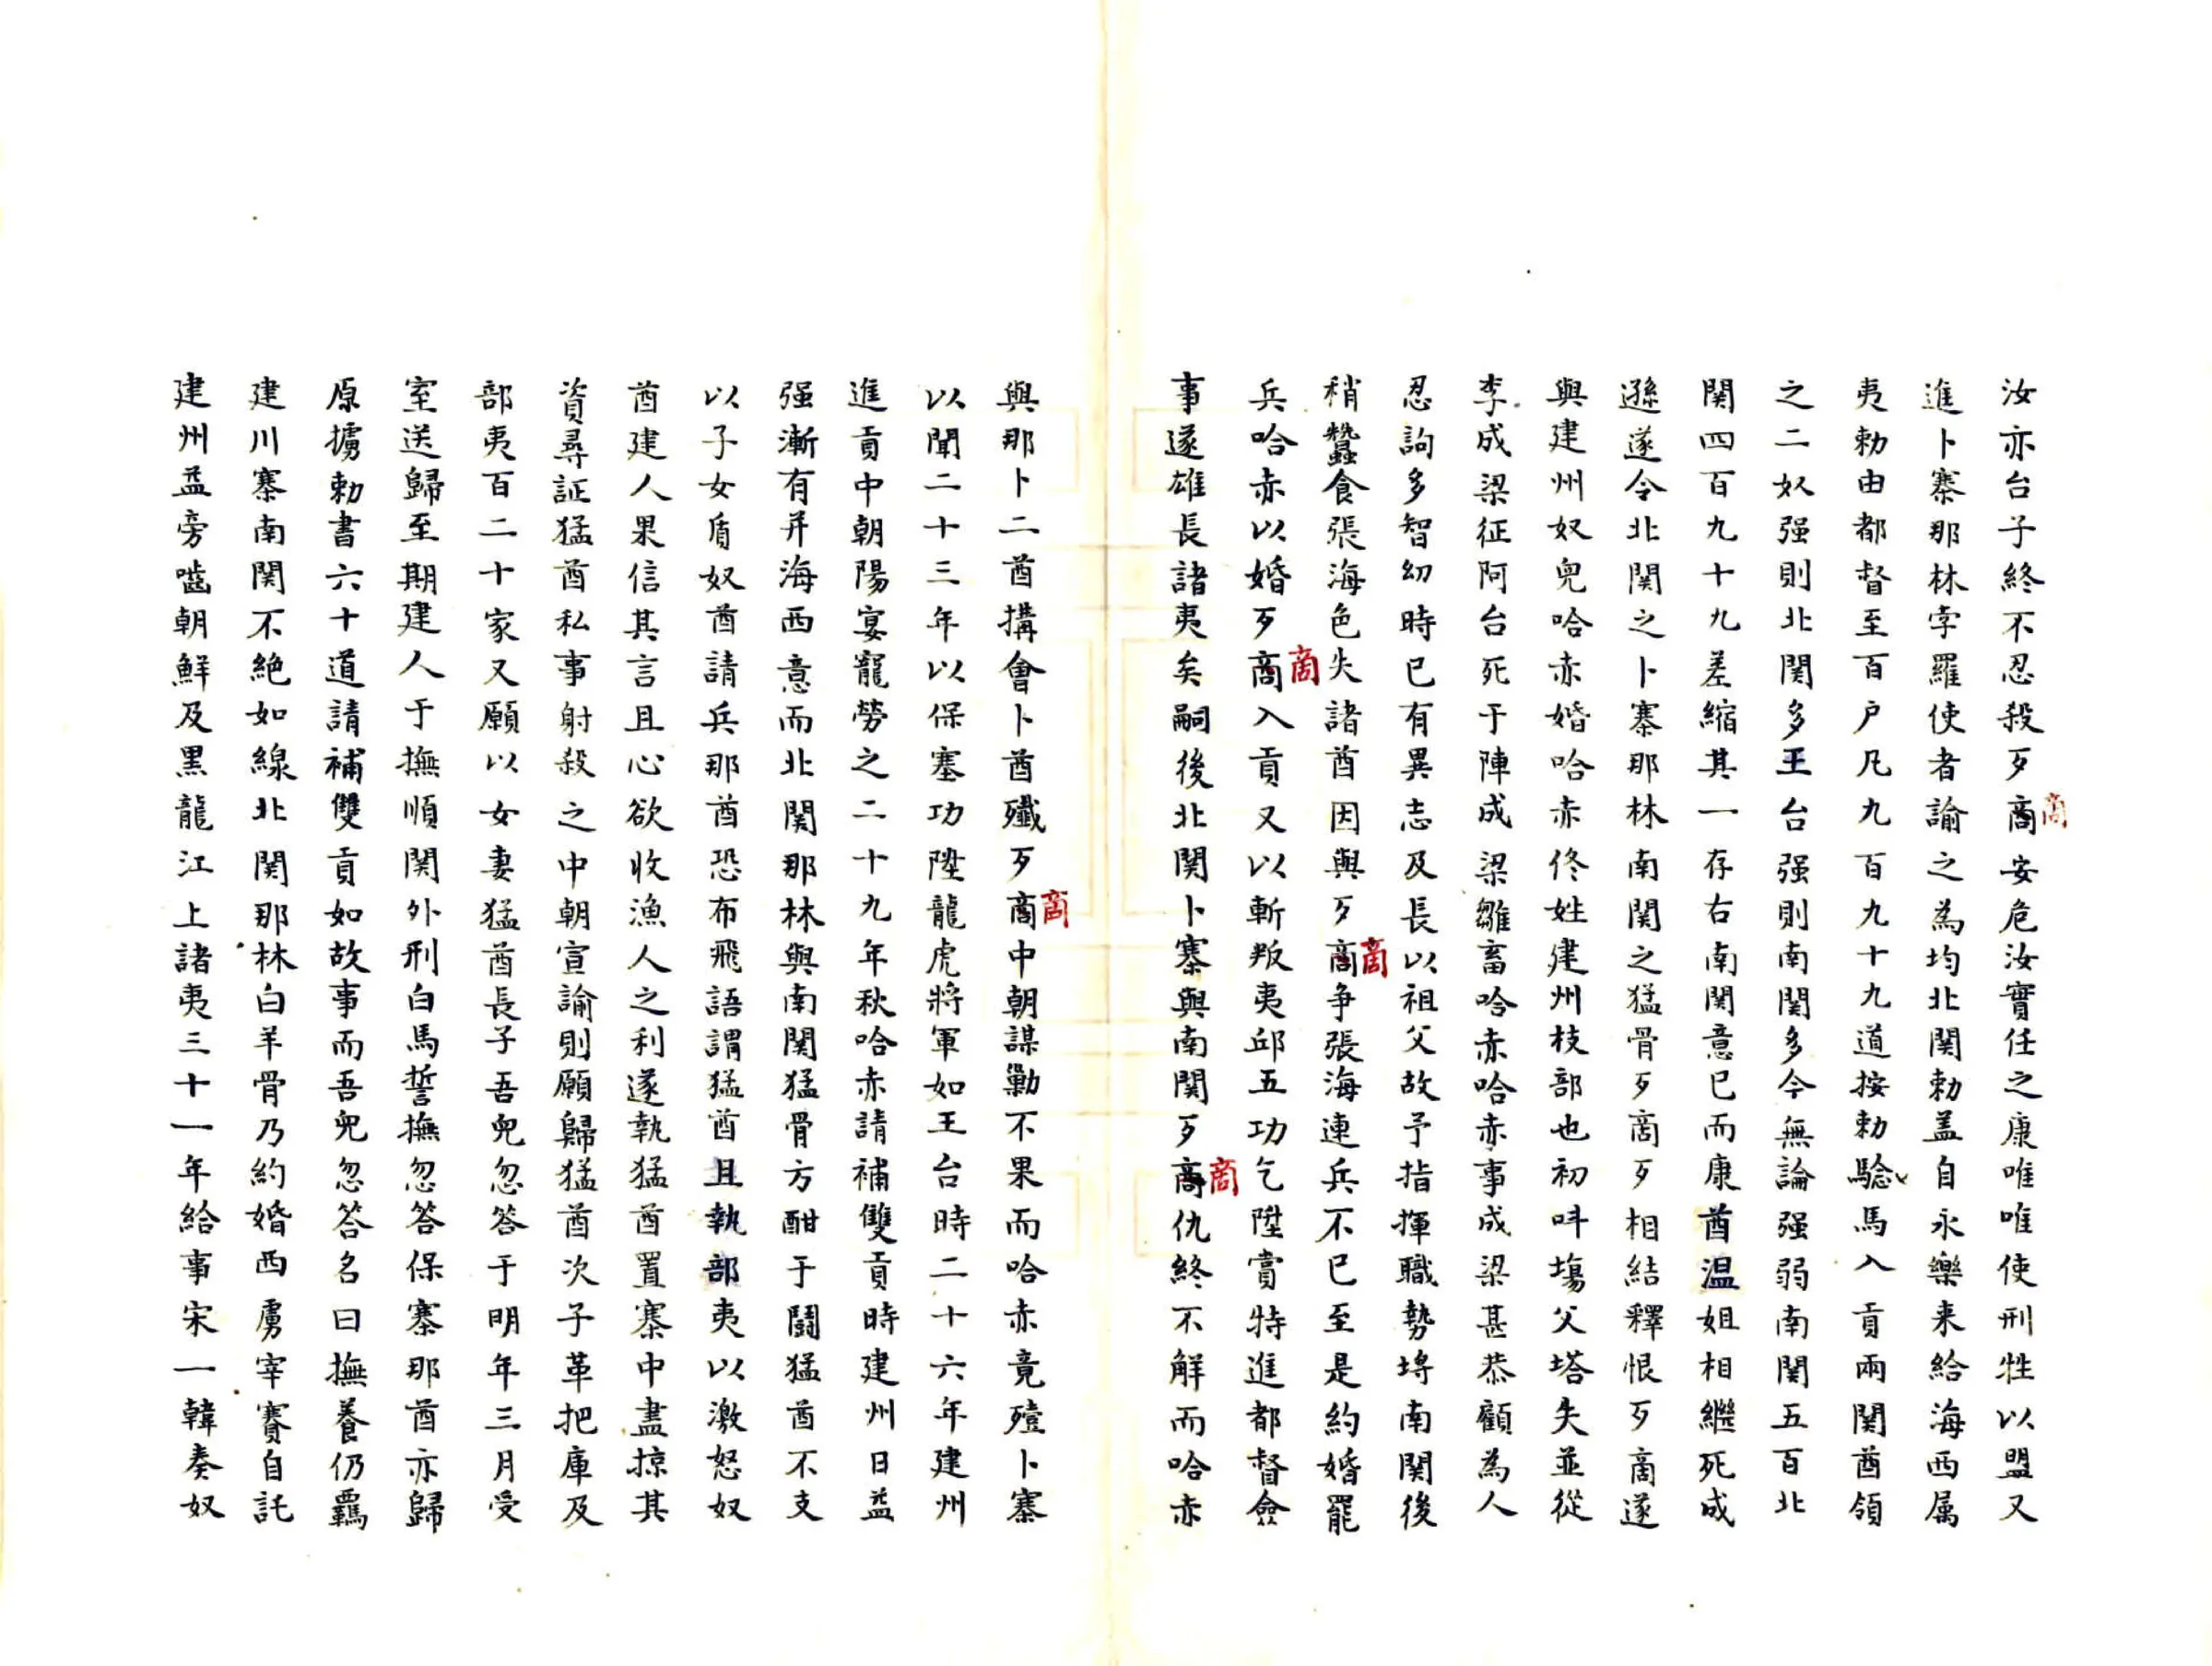 汝亦台子終不忍殺歹商安危汝實任之康唯唯使刑牲以盟又
商
進卜寨那林孛羅使者諭之為均北関勅盖自永樂来給海西属
夷勅由都督至百户凡九百九十九道按勅驗馬入貢兩関酋領
之二奴强則北関多王台强則南関多今無論强弱南関五百北
関四百九十九差縮其一存右南関意已而康酋温姐相繼死成
遜遂令北関之卜寨那林南関之猛骨歹商歹相結釋恨歹商遂
與建州奴兒哈赤婚哈赤佟姓建州枝部也初呌塲父塔失並從
李成梁征阿台死于陣成梁雛畜哈赤哈赤事成梁甚恭顧為人
忍詢多智幼時已有異志及長以祖父故予指揮職勢埒南関後
稍蠶食張海色失諸酋因與歹商争張海連兵不已至是約婚罷
商
兵哈赤以婚歹商入貢又以斬叛夷邱五功乞陞賞特進都督僉
商
事遂雄長諸夷矣嗣後北関卜寨與南関歹商仇終不解而哈赤
商
與那卜二酋搆會卜酋殲歹商中朝謀勦不果而哈赤竟殪卜寨
商
以聞二十三年以保塞功陞龍虎將軍如王台時二十六年建州
進貢中朝陽宴寵勞之二十九年秋哈赤請補雙貢時建州日益
强漸有并海西意而北関那林與南関猛骨方酣于鬪猛酋不支
以子女盾奴酋請兵那酋恐布飛語謂猛酋且執部夷以激怒奴
酋建人果信其言且心欲收漁人之利遂執猛酋置寨中盡掠其
資尋証猛酋私事射殺之中朝宣諭則願歸猛酋次子革把庫及
部夷百二十家又願以女妻猛酋長子吾兒忽答于明年三月受
室送歸至期建人于撫順関外刑白馬誓撫忽答保寨那酋亦歸
原擄勅書六十道請補雙貢如故事而吾兒忽答名曰撫養仍覊
建川寨南関不絶如線北関那林白羊骨乃約婚西虜宰賽自託
建州益旁噬朝鮮及黒龍江上諸夷三十一年給事宋一韓奏奴